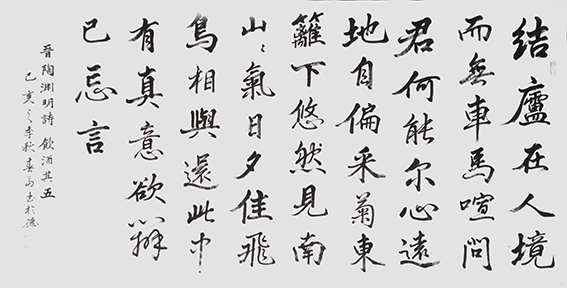 結廬在人境
而無車馬喧問
君何能尔心遠
地自偏采菊東
籬下悠然見南
山〻氣日夕佳飛
鳥相與還此中
有真意欲辨
已忘言
晉陶淵明詩 飲酒其五
己亥之季秋春